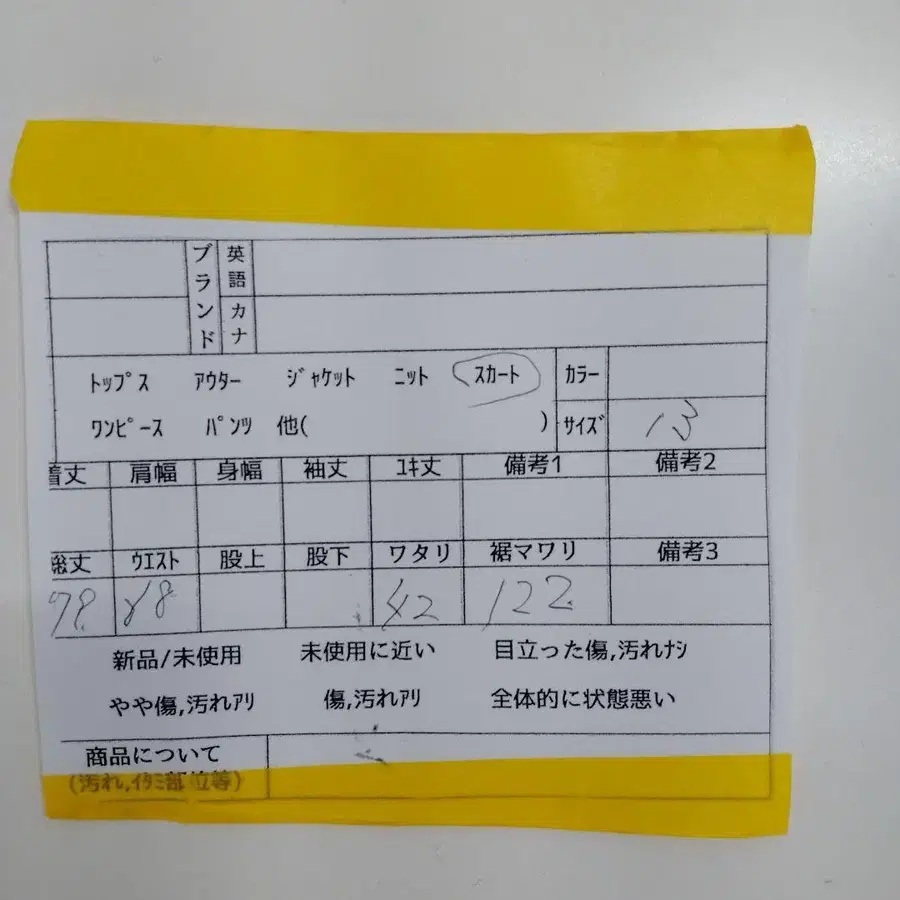 ブランド 英語
カナ
ﾄｯﾌﾟｽ ｱｳﾀｰ ｼﾞｬｹｯﾄ ﾆｯﾄ ｽｶｰﾄ ｶﾗｰ
ﾜﾝﾋﾟｰｽ ﾊﾟﾝﾂ 他( ) ｻｲｽﾞ 13
着丈 肩幅 身幅 袖丈 ﾕｷ丈 備考1 備考2
総丈 ｳｴｽﾄ 股上 股下 ワタリ 裾マワリ 備考3
78 42 122
新品/未使用 未使用に近い 目立った傷,汚れﾅｼ
やや傷,汚れｱﾘ 傷,汚れｱﾘ 全体的に状態悪い
商品について
(汚れ,ｲﾀﾐ部位等)